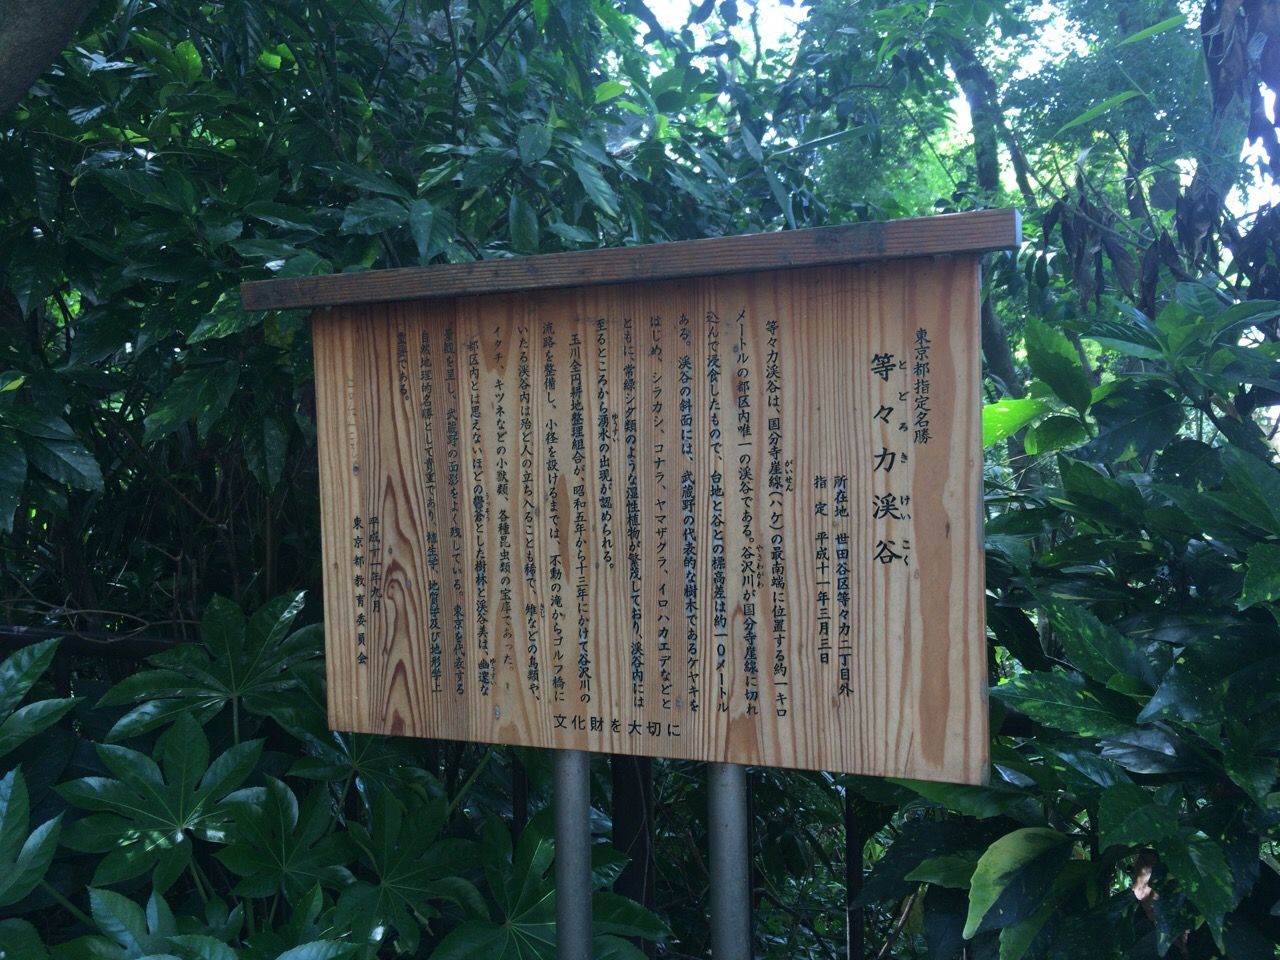 東京都指定名勝
等々力渓谷
とどろきけいこく
所在地 世田谷区等々力二丁目外
指定 平成十一年三月三日
等々力渓谷は、国分寺崖線(ハケ)の最南端に位置する約一キロ
がいせん
メートルの都区内唯一の渓谷である。谷沢川が国分寺崖線に切れ
やざわがわ
込んで浸食したもので、台地と谷との標高差は約一〇メートル
ある。渓谷の斜面には、武蔵野の代表的な樹木であるケヤキを
はじめ、シラカシ、コナラ、ヤマザクラ、イロハカエデなどと
ともに、常緑シダ類のような湿性植物が繁茂しており、渓谷内には
至るところから湧水の出現が認められる。
ゆうすい
玉川全円耕地整理組合が、昭和五年から十三年にかけて谷沢川の
流路を整備し、小径を設けるまでは、不動の滝からゴルフ橋に
いたる渓谷内は殆ど人の立ち入ることも稀で、雉などの鳥類や、
きじ
イタチ、キツネなどの小獣類、各種昆虫類の宝庫であった。
都区内とは思えないほどの鬱蒼とした樹林と渓谷美は、幽邃な
ゆうすい
景観を呈し、武蔵野の面影をよく残している。東京を代表する
自然地理的名勝として貴重であり、植生学、地質学及び地形学上
重要である。
平成十一年九月
東京都教育委員会
文化財を大切に